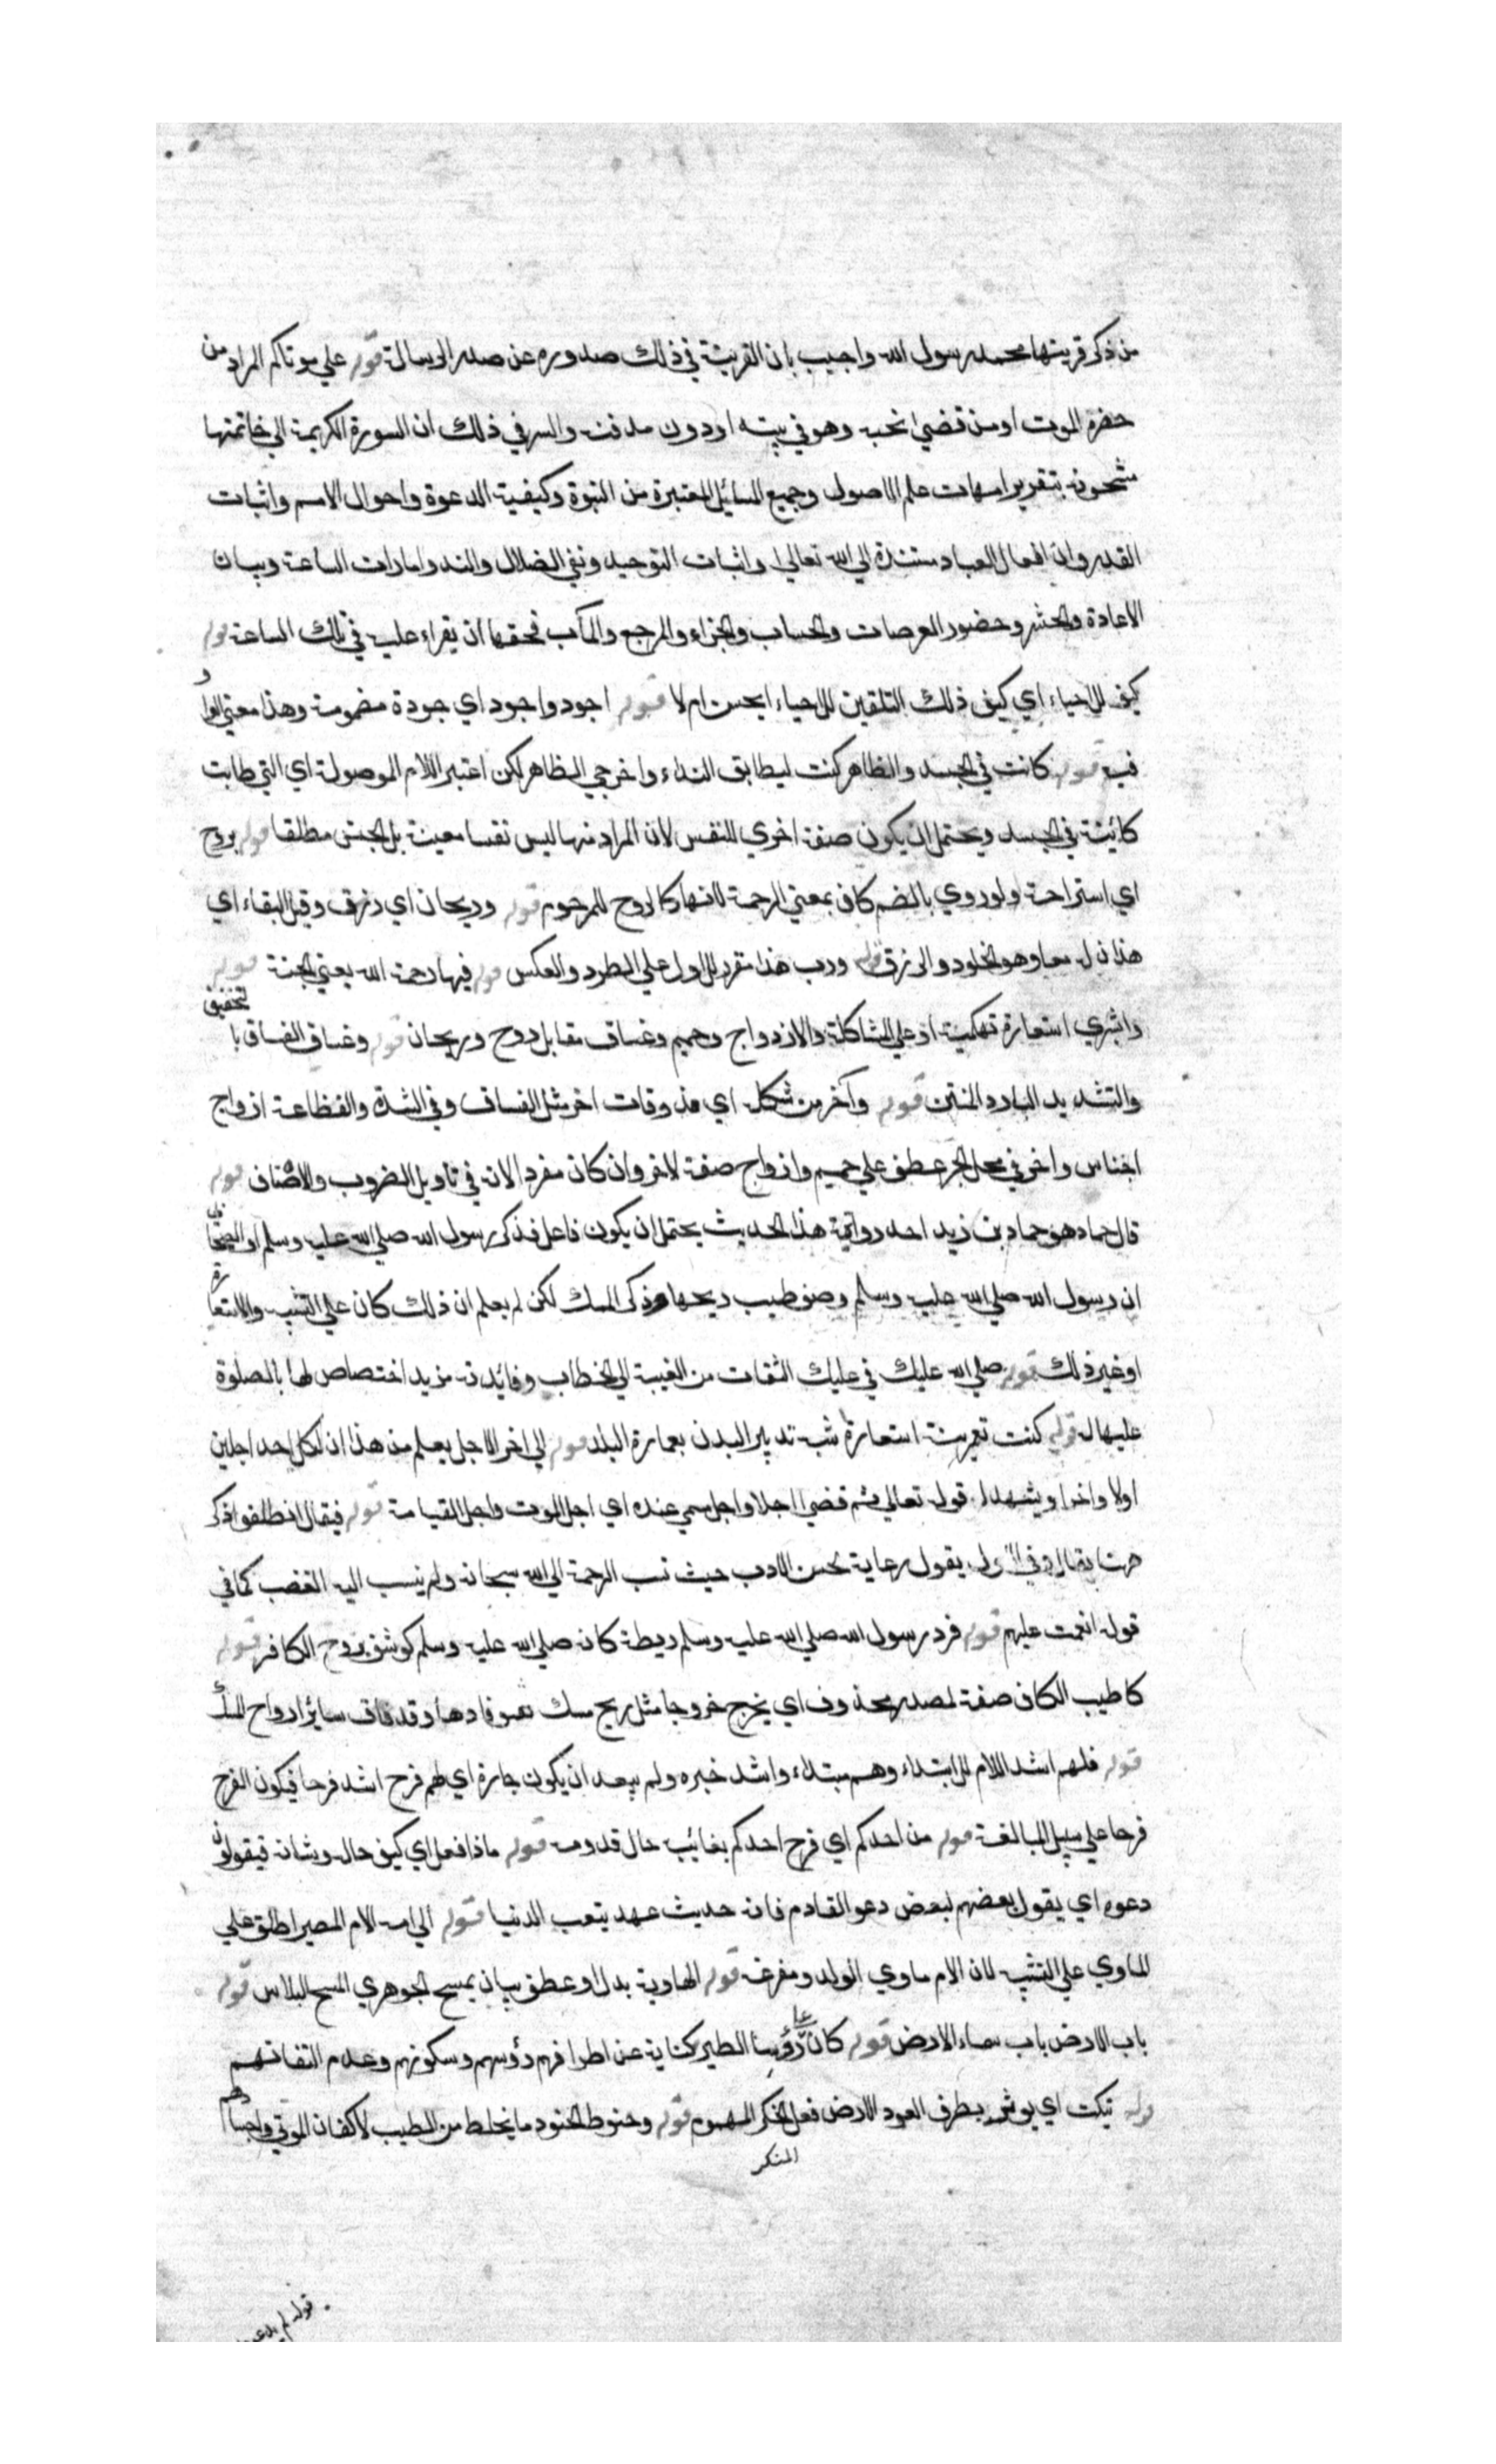 من ذكر قرينتها محمد رسول الله واجيب بان القرينة في ذلك صدوره عن صدر الرسالة قوله علي موتاكم المراد من
حضره الموت او من قضي نحبه وهو في بيته او دون مدفنه والسر في ذلك ان السورة الكريمة الي خاتمتها
مشحونة بتقرير امهات علم الاصول وجميع المسائل المعتبرة من النبوة وكيفية الدعوة واحوال الامم واثبات
القدر وان افعال العباد مستندة الي الله تعالي واثبات التوحيد ونفي الضلال والند وامارات الساعة وبيان
الاعادة والحشر وحضور العرصات والحساب والجزاء والمرجع والمآب فحقها ان يقراء عليه في تلك الساعة قوله
كيف للاحياء اي كيف ذلك التلقين للاحياء ايحسن ام لا قوله اجود واجود اي جودة مضمومة وهذا معني الواو
فيه قوله كانت في الجسد والظاهر كنت ليطابق النداء واخرجي الظاهر لكن اعتبر اللام الموصولة اي التي طابت
كائنة في الجسد ويحتمل ان يكون صفة اخري للنفس لان المراد منها ليس نفسا معينة بل الجنس مطلقا قوله بروح
اي استراحة ولو روي بالضم كان بمعني الرحمة لانها كالروح للمرحوم قوله وريحان اي رزق وقيل البقاء اي
هذان له معا وهو الخلود والرزق قوله ورب هذا مقرر للاول علي الطرد والعكس قوله فيها رحمة الله يعني الجنة قوله
وابشري استعارة تهكمية او علي المشاكلة والازدواج وحميم وغساق مقابل روح وريحان قوله وغساق الغساق بالتخفيف
والتشديد البارد المنتن قوله وآخر من شكله اي مذوقات اخر مثل الغساق وفي الشدة والفظاعة ازواج
اجناس واخر في محل الجر عطف علي حميم وازواج صفة لاخر وان كان مفردا لانه في تاويل الضروب والاصناف قوله
قال حماد هو حماد بن زيد احد رواة هذا الحديث يحتمل ان يكون فاعل فذكر رسول الله صلي الله عليه وسلم او الصحابي
ان رسول الله صلي الله عليه وسلم وصف طيب ريحها وذكر المسك لكن لم يعلم ان ذلك كان علي التشبيه والاستعارة
او غير ذلك قوله صلي الله عليك في عليك التفات من الغيبة الي الخطاب وفائدته مزيد اختصاص لها بالصلوة
عليها له قوله كنت تعمرينه استعارة شبه تدبير البدن بعمارة البلد قوله الي اخر الاجل يعلم من هذا ان لكل احد اجلين
اولا واخرا ويشهد له قوله تعالي ثم قضي اجلا واجل مسمي عنده اي اجل الموت واجل القيامة قوله فيقال انطلقوا ذكر
هنا يقال وفي الاول يقول رعاية لحسن الادب حيث نسب الرحمة الي الله سبحانه ولم ينسب اليه الغضب كما في
قوله انعمت عليهم قوله فرد رسول الله صلي الله عليه وسلم ريطة كانه صلي الله عليه وسلم كوشف بروح الكافر قوله
كاطيب الكاف صفة لمصدر محذوف اي يخرج خروجا مثل ريح مسك وقد فاق سائر ارواح المسك
قوله فلهم اشد اللام للابتداء وهم مبتداء واشد خبره ولم يبعد ان يكون جارة اي لهم فرح اشد فرحا فيكون الفرح
فرحا علي سبيل المبالغة قوله من احدكم اي فرح احدكم بغائبه حال قدومه قوله ماذا فعل اي كيف حاله وشانه فيقولون
دعوه اي يقول بعضهم لبعض دعو القادم فانه حديث عهد بتعب الدنيا قوله الي امه الام المصير اطلق علي
الماوي علي التشبيه لان الام ماوي الولد ومفزعه قوله الهاوية بدل او عطف بيان بمسح الجوهري المسح البلاس قوله
باب الارض باب سماء الارض قوله كان علي رؤسنا الطير كناية عن اطرافهم رؤسهم وسكونهم وعدم التفاتهم
قوله ينكت اي يوثر بطرف العود الارض فعل المفكر المهموم قوله وحنوط الحنوط ما يخلط من الطيب لاكفان الموتي واجسادهم
المتفكر
قوله لم يدعوها